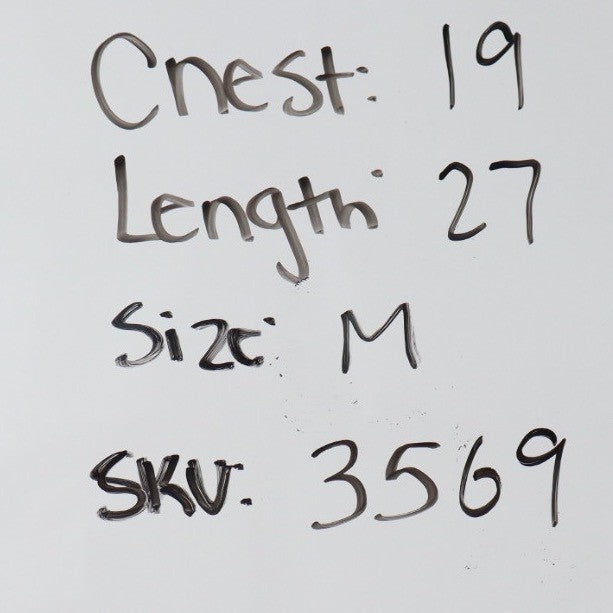 Chest: 19
Length: 27
Size: M
SKU: 3569